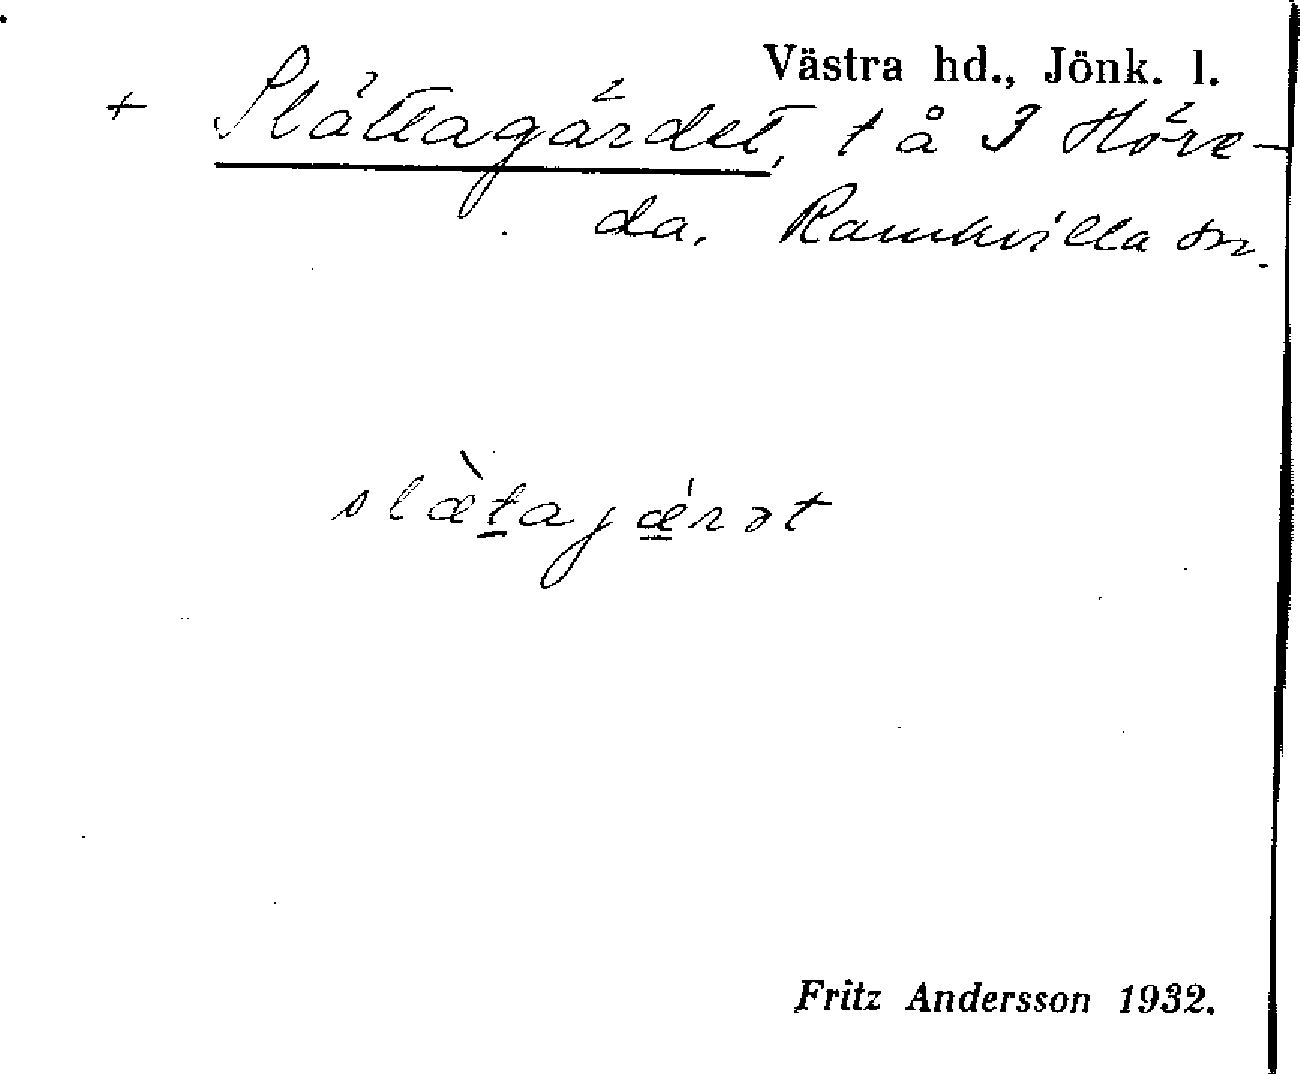 Västra hd., Jönk. l.
+ Slättagärdet, t å 3 Höre-
da. Ramkvilla sn.
slæ̀tajǽrət
Fritz Andersson 1932.